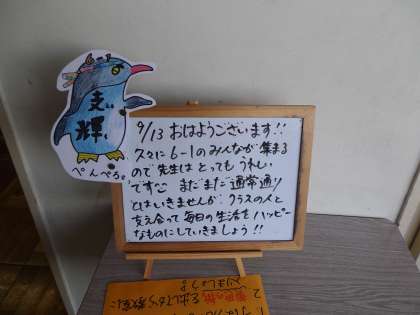 支
輝
ぺんぺる。
9/13 おはようございます!!
久々に6-1のみんなが集まる
ので先生はとってもうれしい
です♡ まだまだ通常通り
とはいきませんが、クラスの人と
支え合って毎日の生活をハッピー
なものにしていきましょう!!